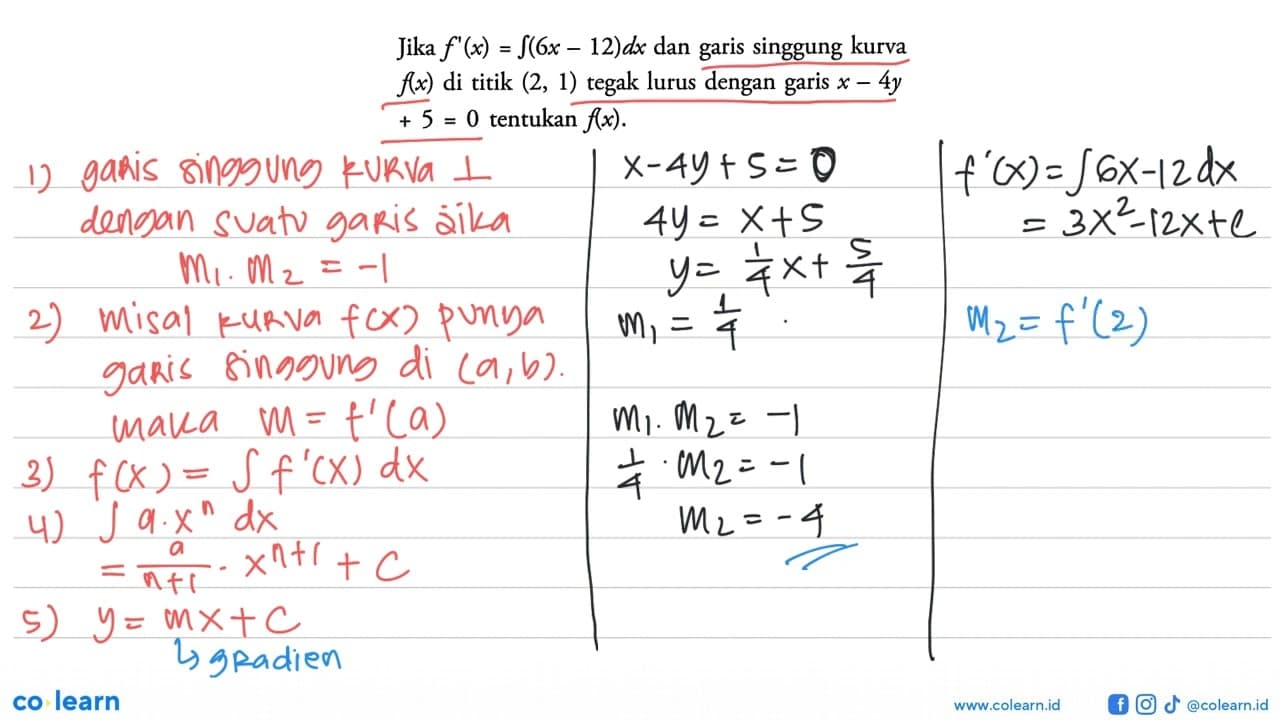 Jika f'(x) = ∫(6x – 12)dx dan garis singgung kurva
f(x) di titik (2, 1) tegak lurus dengan garis x – 4y
+ 5 = 0 tentukan f(x).
1) garis singgung kurva ⊥
dengan suatu garis jika
m₁ . m₂ = -1
2) misal kurva f(x) punya
garis singgung di (a,b).
maka m = f'(a)
3) f(x) = ∫ f'(x) dx
4) ∫ a.xⁿ dx
= a/(n+1) . xⁿ⁺¹ + C
5) y = mx + C
↳ gradien
x - 4y + 5 = 0
4y = x + 5
y = 1/4 x + 5/4
m₁ = 1/4
m₁ . m₂ = -1
1/4 . m₂ = -1
m₂ = -4
f'(x) = ∫ 6x - 12 dx
= 3x² - 12x + C
m₂ = f'(2)
co learn
www.colearn.id
@colearn.id